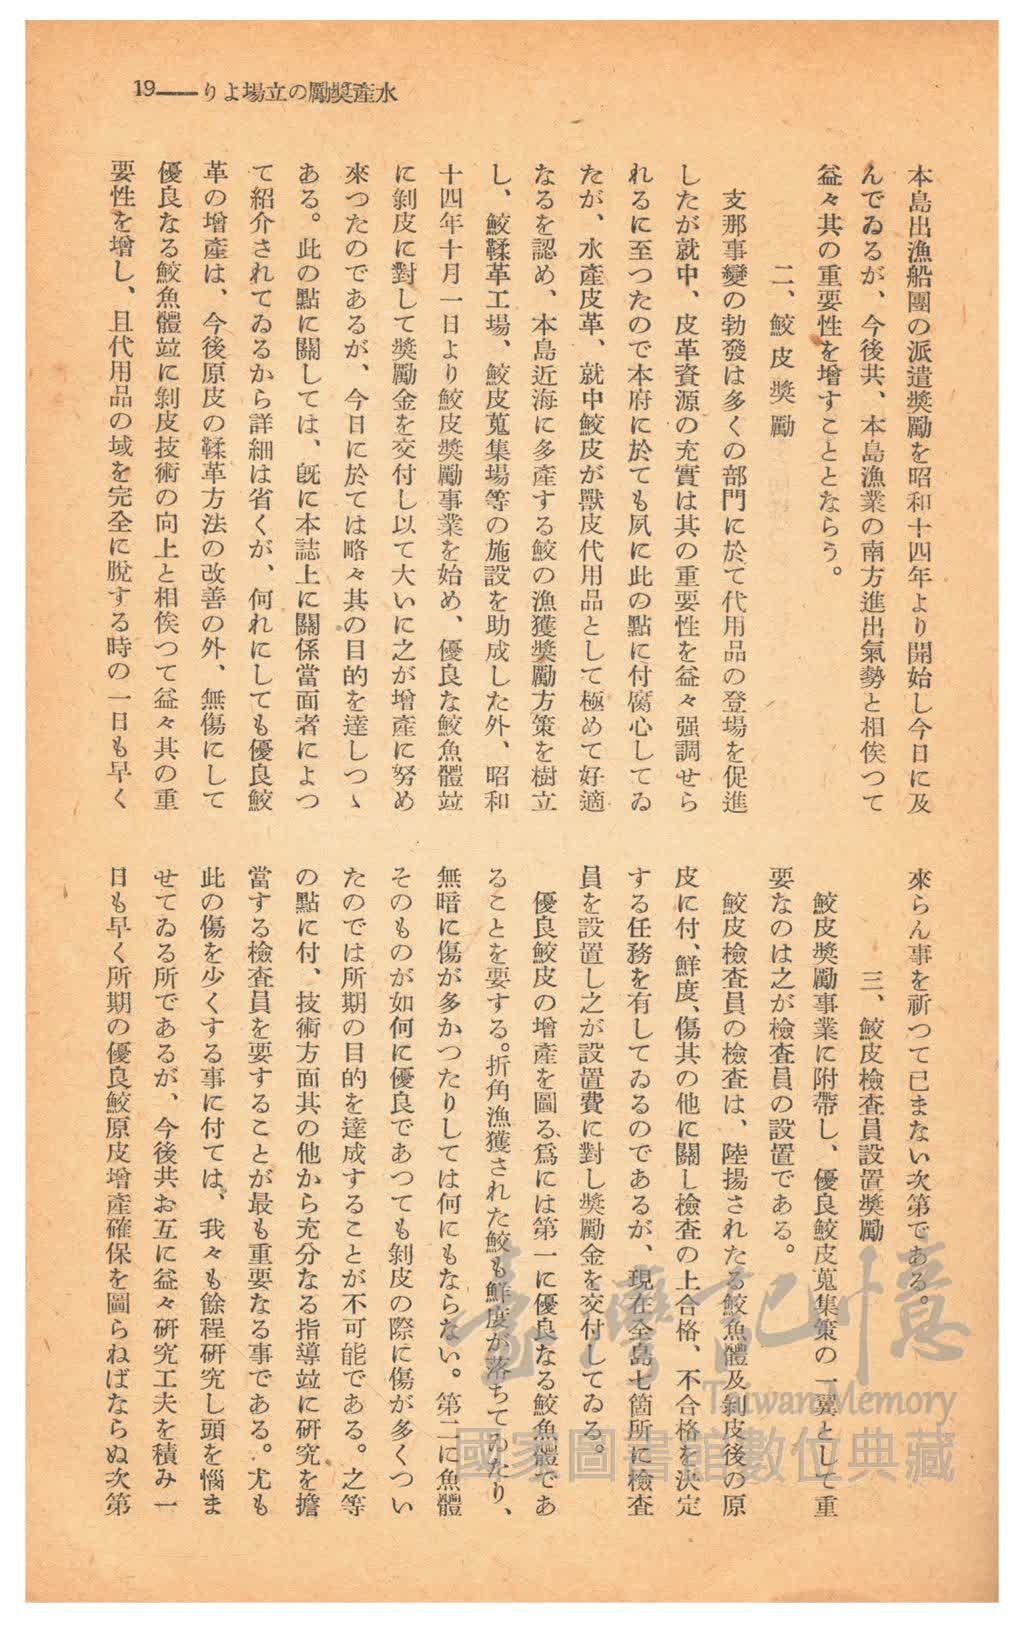 水產奬勵の立場より——19
本島出漁船團の派遣奬勵を昭和十四年より開始し今日に及
んでゐるが、今後共、本島漁業の南方進出氣勢と相俟つて
益々其の重要性を增すこととならう。
二、鮫皮奬勵
支那事變の勃發は多くの部門に於て代用品の登場を促進
したが就中、皮革資源の充實は其の重要性を益々强調せら
れるに至つたので本府に於ても夙に此の點に付腐心してゐ
たが、水產皮革、就中鮫皮が獸皮代用品として極めて好適
なるを認め、本島近海に多產する鮫の漁獲奬勵方策を樹立
し、鮫鞣革工場、鮫皮蒐集場等の施設を助成した外、昭和
十四年十月一日より鮫皮奬勵事業を始め、優良な鮫魚體竝
に剝皮に對して奬勵金を交付し以て大いに之が增產に努め
來つたのであるが、今日に於ては略々其の目的を達しつゝ
ある。此の點に關しては、旣に本誌上に關係當面者によつ
て紹介されてゐるから詳細は省くが、何れにしても優良鮫
革の增產は、今後原皮の鞣革方法の改善の外、無傷にして
優良なる鮫魚體竝に剝皮技術の向上と相俟つて益々其の重
要性を增し、且代用品の域を完全に脫する時の一日も早く
來らん事を祈つて已まない次第である。
三、鮫皮檢查員設置奬勵
鮫皮奬勵事業に附帶し、優良鮫皮蒐集策の一翼として重
要なのは之が檢查員の設置である。
鮫皮檢查員の檢查は、陸揚されたる鮫魚體及剝皮後の原
皮に付、鮮度、傷其の他に關し檢查の上合格、不合格を決定
する任務を有してゐるのであるが、現在全島七箇所に檢查
員を設置し之が設置費に對し奬勵金を交付してゐる。
優良鮫皮の增產を圖る爲には第一に優良なる鮫魚體であ
ることを要する。折角漁獲された鮫も鮮度が落ちてゐたり、
無暗に傷が多かつたりしては何にもならない。第二に魚體
そのものが如何に優良であつても剝皮の際に傷が多くつい
たのでは所期の目的を達成することが不可能である。之等
の點に付、技術方面其の他から充分なる指導竝に硏究を擔
當する檢查員を要することが最も重要なる事である。尤も
此の傷を少くする事に付ては、我々も餘程硏究し頭を惱ま
せてゐる所であるが、今後共お互に益々硏究工夫を積み一
日も早く所期の優良鮫原皮增產確保を圖らねばならぬ次第
臺灣記憶
Taiwan Memory
國家圖書館數位典藏